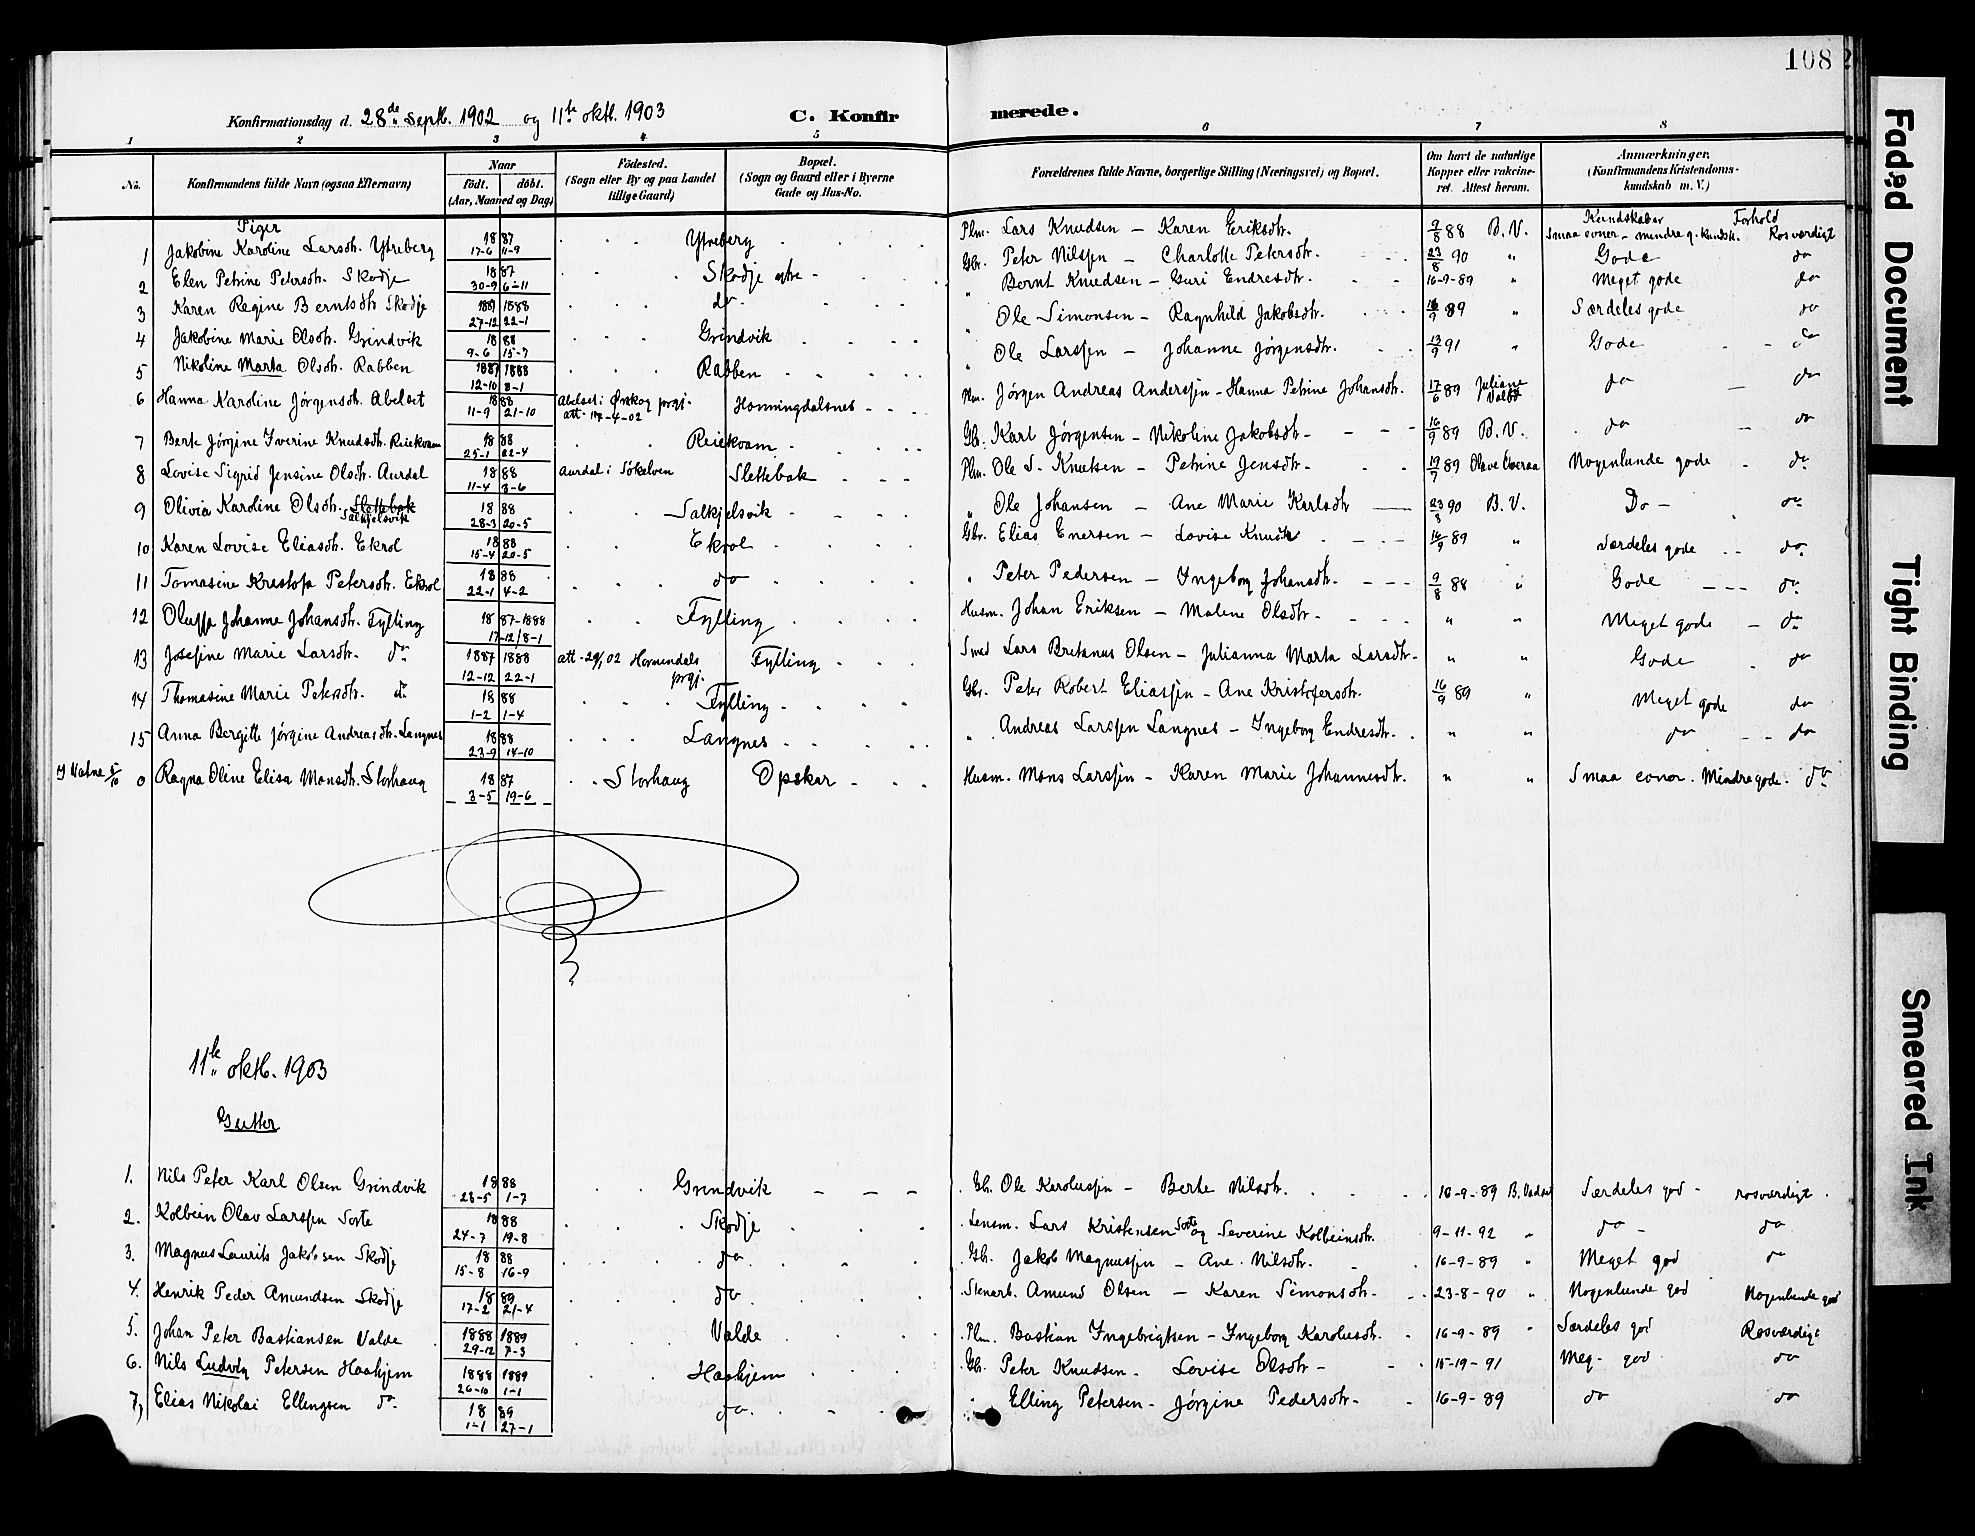 108
Konfirmationsdag d. 28de Septb. 1902 og 11te oktb. 1903 C. Konfirmerede.
1 2 3 4 5 6 7 8
No. Konfirmandens fulde Navn (ogsaa Efternavn) Naar født. døbt. (Aar, Maaned og Dag) Fødested. (Sogn eller By og paa Landet tillige Gaard) Bopæl. (Sogn og Gaard eller i Byerne Gade og Hus-No. Forældrenes fulde Navne, borgerlige Stilling (Næringsvei) og Bopæl. Om havt de naturlige Kopper eller vakcineret. Attest herom. Anmærkninger. (Konfirmandens Kristendomskundskab m. V.)
Piger Kundskaber Forhold
1 Jakobine Karoline Larsdtr. Ytreberg 1887 17-6 11-9 Ytreberg Plm. Lars Knudsen – Karen Eriksdtr. 9/8 88 B.V. Smaa evner – mindre g. kundsk. Rosværdigt
2 Elen Petrine Petersdtr. Skodje 1887 30-9 6-11 Skodje ytre Gbr. Peter Nilssen – Charlotte Petersdtr. 23/8 90 " Gode do
3 Karen Regine Berntsdtr Skodje 1887 1888 27-12 22-1 do " Bernt Knudsen – Guri Endresdtr. 16-9-89 " Meget gode do
4 Jakobine Marie Olsdtr. Grindvik 1888 9-6 15-7 Grindvik " Ole Simonsen – Ragnhild Jakobsdtr. 16/9 89 " Særdeles gode do
5 Nikoline Marta Olsdtr. Rabben 1887 1888 12-10 8-1 Rabben " Ole Larssen – Johanne Jørgensdtr. 13/9 91 " Gode do
6 Hanna Karoline Jørgensdtr. Abelset 1888 11-9 21-10 Abelset i Ørskog prgj. att. 17-4-02 Honningdalsnes Plm. Jørgen Andreas Anderssen – Hanna Petrine Johansdtr. 17/6 89 Juliane Valbø do do
7 Berte Jørgine Iverine Knudsdtr. Reiekvam 1888 25-1 22-4 Reiekvam Gb. Karl Jørgensen – Nikoline Jakobsdtr – 16/9 89 B.V. do do
8 Lovise Sigrid Jensine Olsdtr. Aurdal 1888 11-4 3-6 Aurdal i Søkelven Slettebak Plm. Ole S. Knutsen – Petrine Jensdtr – 19/9 89 Olave Overaa Nogenlunde gode do
9 Olivia Karoline Olsdtr. Slettebak Salkjelsvik 1888 28-3 20-5 Salkjelsvik " Ole Johansen – Ane Marie Karlsdtr 23/8 90 B.V. Do – do
10 Karen Lovise Eliasdtr. Ekrol 1888 15-4 20-5 Ekrol Gbr. Elias Enersen – Lovise Knudtr 16/9 89 " Særdeles gode do
11 Tomasine Kristofa Petersdtr. Ekrol 1888 22-1 4-2 do " Peter Pedersen – Ingeborg Johansdtr. 9/8 88 " Gode do
12 Oluffa Johanne Johansdtr. Fylling 1887-1888 17-12/8-1 Fylling Husm. Johan Eriksen – Malene Olsdtr – " " Meget gode – do
13 Josefine Marie Larsdtr. do 1887 1888 12-12 22-1 att. 02 Hornindals prgj. Fylling Smed Lars Bretanus Olsen – Julianna Marta Larsdtr – " " Gode do
14 Thomasine Marie Petersdtr. do 1888 1-2 1-4 Fylling Gbr. Peter Robert Eliassen – Ane Kristofersdtr. 16/9 89 " Meget gode do
15 Anna Bergitte Jørgine Andreasdtr. Langnes 1888 23-9 14-10 Langnes " Andreas Larssen Langnes – Ingeborg Endresdtr. " " do do
I Vatne 5/10 0 Ragna Oline Elisa Monsdtr. Storhaug 1887 3-5 19-6 Storhaug Opskar Husm. Mons Larssen – Karen Marie Johannesdtr. " " Smaa evner. Mindre gode. do
11te oktb. 1903
Gutter
1. Nils Peter Karl Olsen Grindvik 1888 28-5 1-7 Grindvik Gb. Ole Karolussen – Berte Nilsdtr. 16-9-89 B. Vadset Særdeles god – rosværdigt.
2. Kolbein Olav Larssen Sorte 1888 24-7 19-8 Skodje Lensm. Lars Kristensen Sorte og Severine Kolbeinsdtr. 9-11-92 " do – do
3. Magnus Laurits Jakobsen Skodje 1888 15-8 16-9 do Gb. Jakob Magnussen – Ane Nilsdtr. 16-9-89 " Meget god do
4. Henrik Peder Amundsen Skodje 1889 17-2 21-4 do Stenarb. Amund Olsen – Karen Simonsdtr – 23-8-90 " Nogenlunde god Nogenlunde god
5. Johan Peter Bastiansen Valde 1888 1889 29-12 7-3 Valde Plm. Bastian Ingebrigtsen – Ingeborg Karolusdtr. 16-9-89 " Særdeles god Rosværdigt
6. Nils Ludvig Petersen Haahjem 1888 1889 26-10 1-1 Haahjem Gb. Peter Knudsen – Lovise Olsdtr – 15-19-91 Meg. god do
7, Elias Nikolai Ellingsen do 1889 1-1 27-1 do " Elling Petersen – Jørgine Pedersdtr – 16-9-89 do do
Faded Document
Tight Binding
Smeared Ink